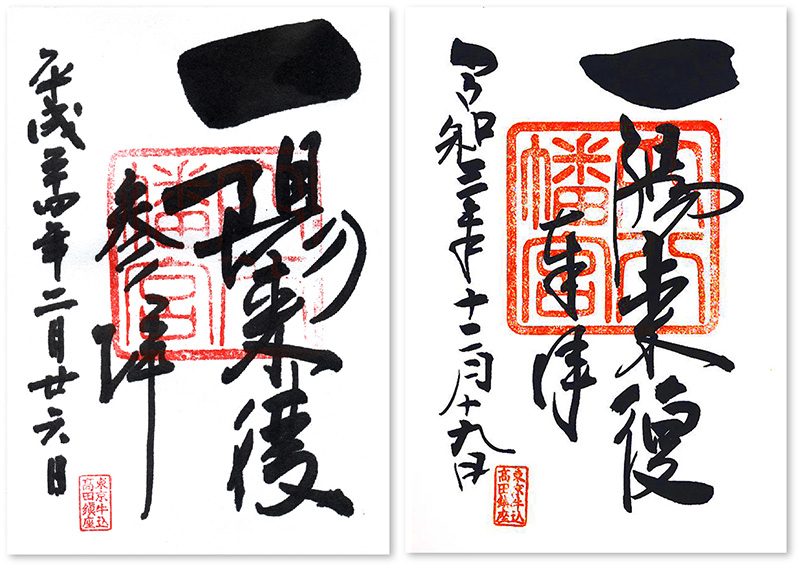 一陽来復
参拝
平成二十四年二月廿六日
穴八
幡宮
東京牛込
高田鎮座
一陽来復
奉拝
令和三年十二月十九日
穴八
幡宮
東京牛込
高田鎮座